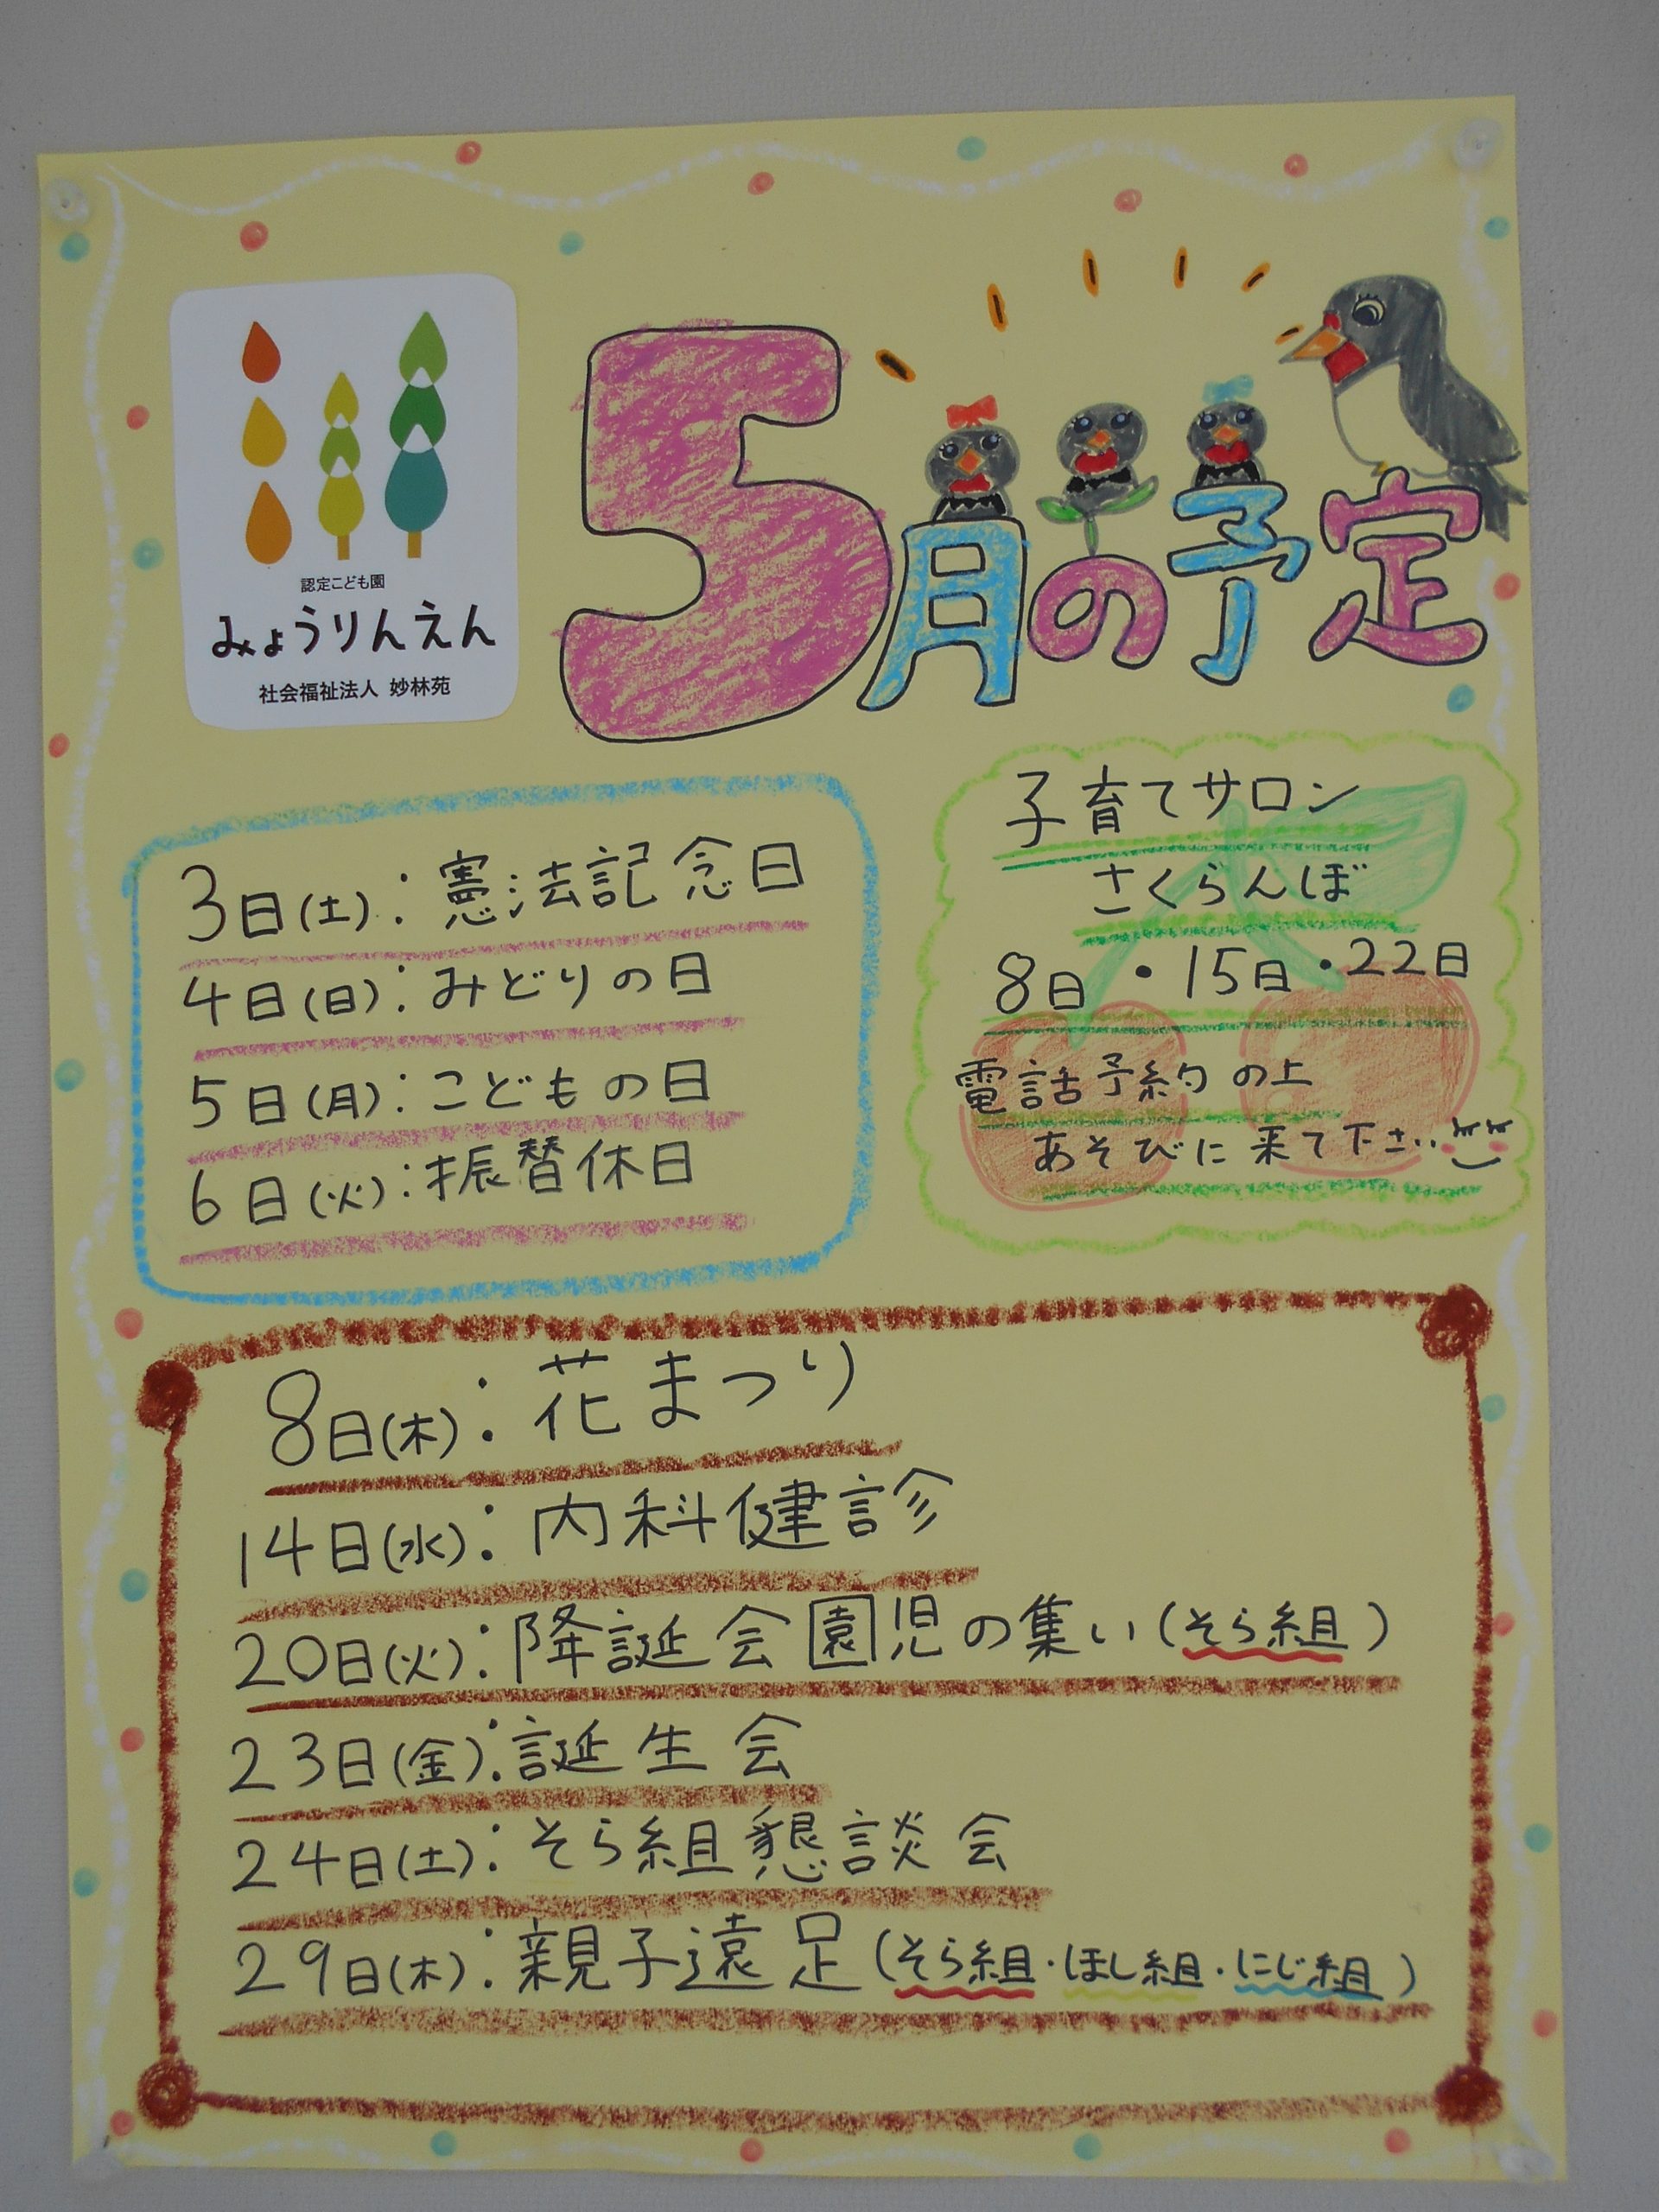 5月の予定
認定こども園
みょうりんえん
社会福祉法人 妙林苑
3日(土):憲法記念日
4日(日):みどりの日
5日(月):こどもの日
6日(火):振替休日
子育てサロン
さくらんぼ
8日・15日・22日
電話予約の上
あそびに来て下さい
8日(木):花まつり
14日(水):内科健診
20日(火):降誕会園児の集い(そら組)
23日(金):誕生会
24日(土):そら組懇談会
29日(木):親子遠足(そら組・ほし組・にじ組)